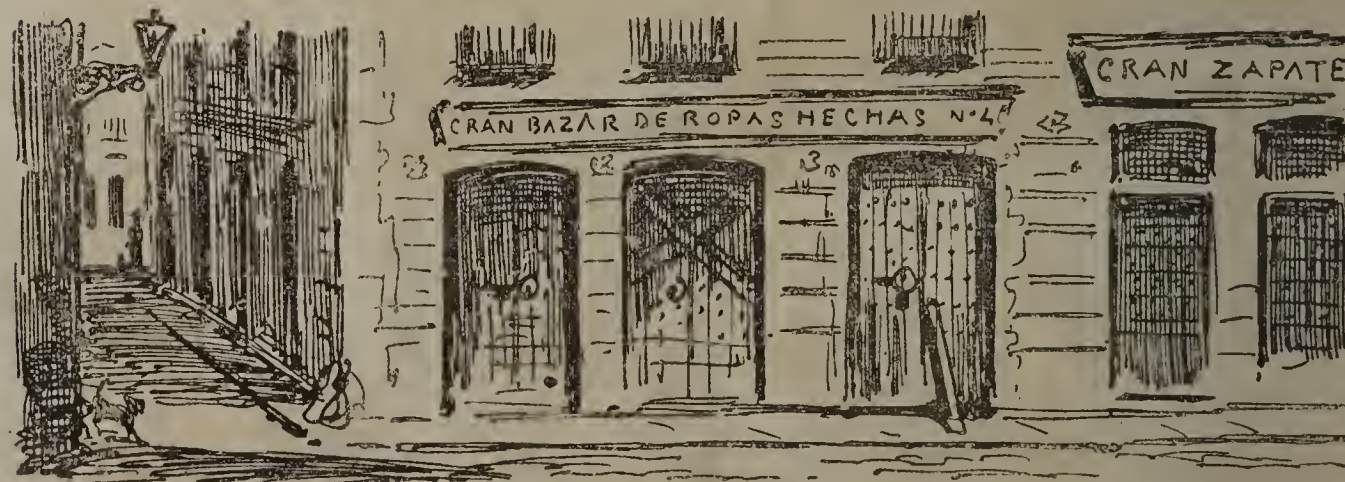 GRAN BAZAR DE ROPAS HECHAS Nº4
GRAN ZAPATE